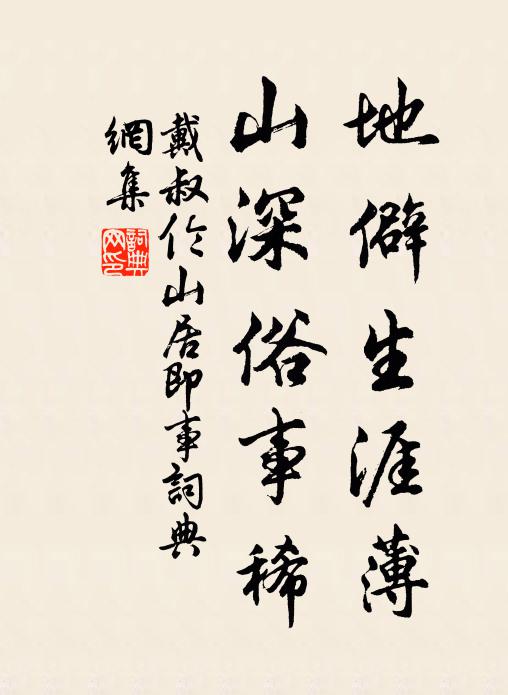 地僻生涯薄
山深俗事稀
戴叔伦山居即事詞典
網集
詞典
网印